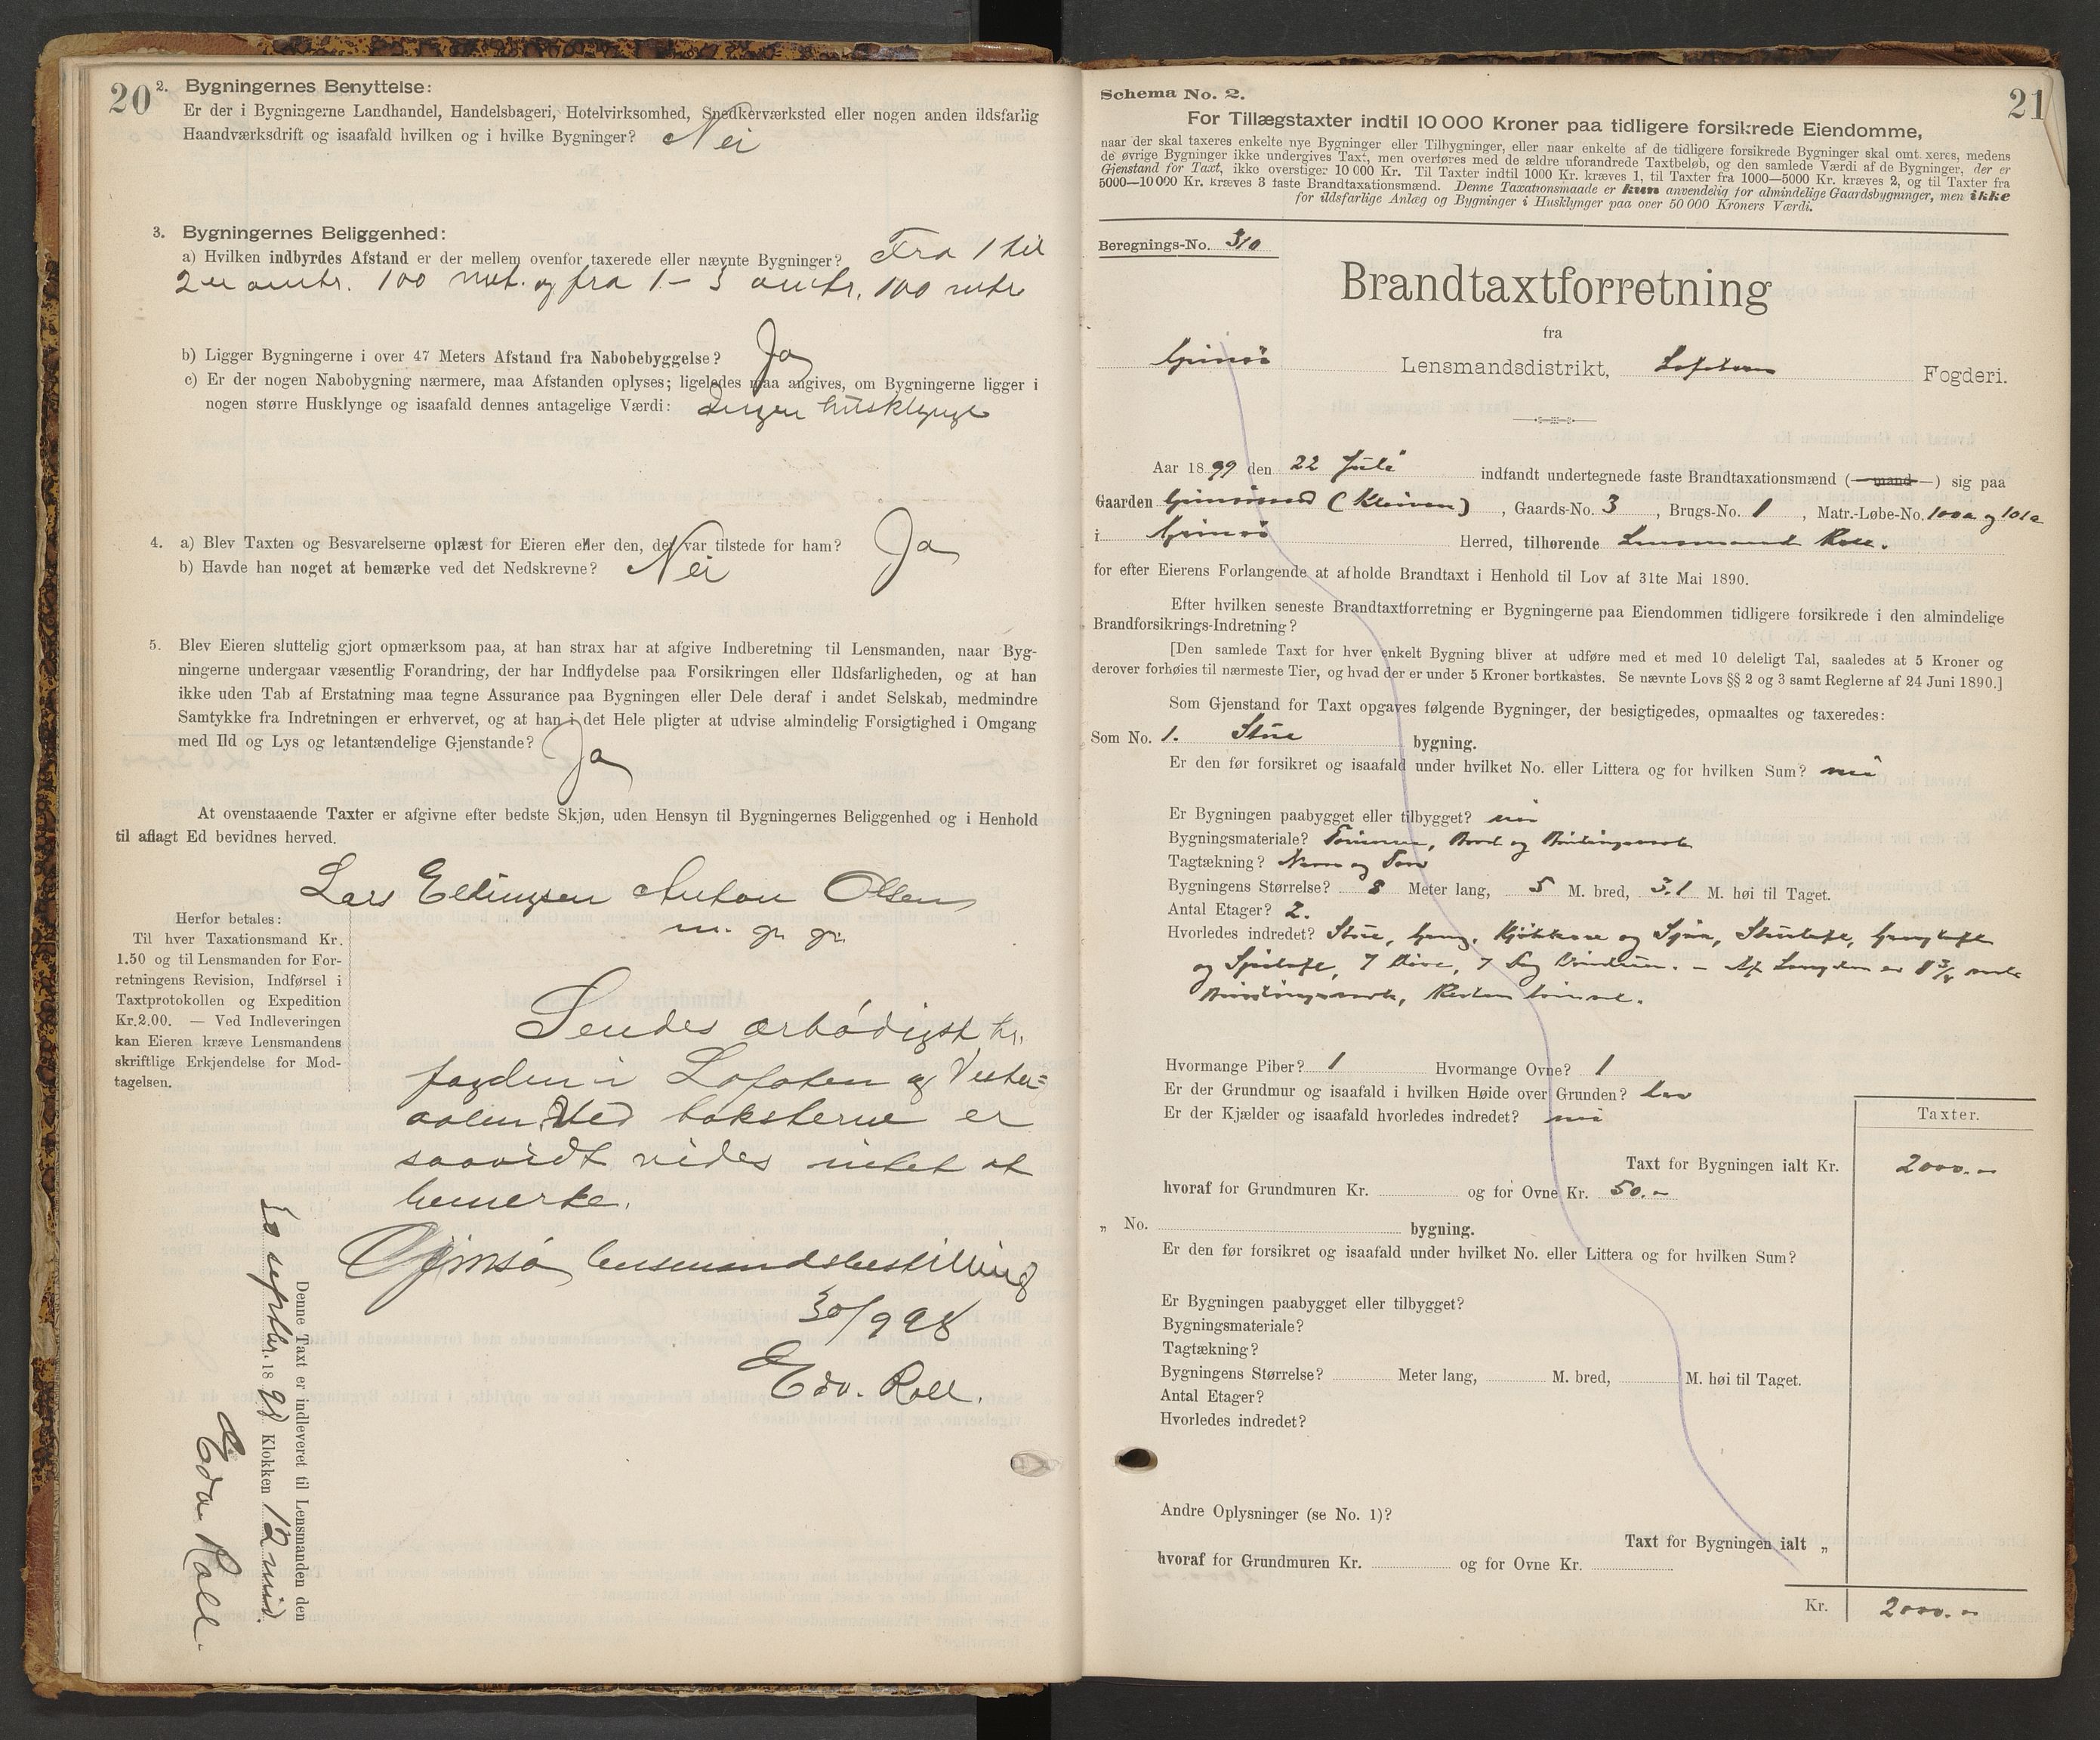 20
2. Bygningernes Benyttelse:
Er der i Bygningerne Landhandel, Handelsbageri, Hotelvirksomhed, Snedkerværksted eller nogen anden ildsfarlig
Haandværksdrift og isaafald hvilken og i hvilke Bygninger? Nei
3. Bygningernes Beliggenhed:
a) Hvilken indbyrdes Afstand er der mellem ovenfor taxerede eller nævnte Bygninger? Fra 1 til
2 er omtr. 100 met. og fra 1 - 3 omtr. 100 metr
b) Ligger Bygningerne i over 47 Meters Afstand fra Nabobebyggelse? Ja
c) Er der nogen Nabobygning nærmere, maa Afstanden oplyses; ligeledes maa angives, om Bygningerne ligger i
nogen større Husklynge og isaafald dennes antagelige Værdi: Ingen husklynge
4. a) Blev Taxten og Besvarelserne oplæst for Eieren eller den, der var tilstede for ham? Ja
b) Havde han noget at bemærke ved det Nedskrevne? Nei
5. Blev Eieren sluttelig gjort opmærksom paa, at han strax har at afgive Indberetning til Lensmanden, naar Byg-
ningerne undergaar væsentlig Forandring, der har Indflydelse paa Forsikringen eller Ildsfarligheden, og at han
ikke uden Tab af Erstatning maa tegne Assurance paa Bygningen eller Dele deraf i andet Selskab, medmindre
Samtykke fra Indretningen er erhvervet, og at han i det Hele pligter at udvise almindelig Forsigtighed i Omgang
med Ild og Lys og letantændelige Gjenstande? Ja
At ovenstaaende Taxter er afgivne efter bedste Skjøn, uden Hensyn til Bygningernes Beliggenhed og i Henhold
til aflagt Ed bevidnes herved.
Lars Ellingsen Anton Olsen
m. p. p.
Herfor betales:
Til hver Taxationsmand Kr.
1.50 og til Lensmanden for For-
retningens Revision, Indførsel i
Taxtprotokollen og Expedition
Kr.2.00. — Ved Indleveringen
kan Eieren kræve Lensmandens
skriftlige Erkjendelse for Mod-
tagelsen.
Sendes ærbødigst hr.
fogden i Lofoten og Vester=
aalen. Ved taksterne er
saavidt vides intet at
bemerke.
Gimsø lensmandsbestilling
30/9 98
Edv. Roll.
Denne Taxt er indleveret til Lensmanden den
30 septbr. 1898 Klokken 12 mid.
Edv. Roll.
21
Schema No. 2.
For Tillægstaxter indtil 10 000 Kroner paa tidligere forsikrede Eiendomme,
naar der skal taxeres enkelte nye Bygninger eller Tilbygninger, eller naar enkelte af de tidligere forsikrede Bygninger skal omt. xeres, medens
de øvrige Bygninger ikke undergives Taxt, men overføres med de ældre uforandrede Taxtbeløb, og den samlede Værdi af de Bygninger, der er
Gjenstand for Taxt, ikke overstiger 10 000 Kr. Til Taxter indtil 1000 Kr. kræves 1, til Taxter fra 1000—5000 Kr. kræves 2, og til Taxter fra
5000—10 000 Kr. kræves 3 faste Brandtaxationsmænd. Denne Taxationsmaade er kun anvendelig for almindelige Gaardsbygninger, men ikke
for ildsfarlige Anlæg og Bygninger i Husklynger paa over 50 000 Kroners Værdi.
Beregnings-No. 310
Brandtaxtforretning
fra
Gimsø Lensmandsdistrikt, Lofotens Fogderi.
Aar 1899 den 22 Juli indfandt undertegnede faste Brandtaxationsmænd (—mand—) sig paa
Gaarden Gimsøsand (Kleiven), Gaards-No. 3, Brugs-No. 1, Matr.-Løbe-No. 100a og 101a
i Gimsø Herred, tilhørende Lensmand Roll.
for efter Eierens Forlangende at afholde Brandtaxt i Henhold til Lov af 31te Mai 1890.
Efter hvilken seneste Brandtaxtforretning er Bygningerne paa Eiendommen tidligere forsikrede i den almindelige
Brandforsikrings-Indretning?
[Den samlede Taxt for hver enkelt Bygning bliver at udføre med et med 10 deleligt Tal, saaledes at 5 Kroner og
derover forhøies til nærmeste Tier, og hvad der er under 5 Kroner bortkastes. Se nævnte Lovs §§ 2 og 3 samt Reglerne af 24 Juni 1890.]
Som Gjenstand for Taxt opgaves følgende Bygninger, der besigtigedes, opmaaltes og taxeredes:
Som No. 1. Stue bygning.
Er den før forsikret og isaafald under hvilket No. eller Littera og for hvilken Sum? nei
Er Bygningen paabygget eller tilbygget? nei
Bygningsmateriale? Tømmer, Bord og Bindingsverk
Tagtækning? Næver og Torv
Bygningens Størrelse? 8 Meter lang, 5 M. bred, 3.1 M. høi til Taget.
Antal Etager? 2.
Hvorledes indredet? Stue, Gang, Kjøkken og Spise, Stueloft, Gangloft
og Spiseloft, 7 Døre, 7 Fag Vinduer. – Af Længden er
Bindingsverk, Resten tømret.
Hvormange Piber? 1 Hvormange Ovne? 1
Er der Grundmur og isaafald i hvilken Høide over Grunden? lav
Er der Kjælder og isaafald hvorledes indredet? nei
Taxter.
Taxt for Bygningen ialt Kr. 2000.–
hvoraf for Grundmuren Kr. og for Ovne Kr. 50.–
„ No. bygning.
Er den før forsikret og isaafald under hvilket No. eller Littera og for hvilken Sum?
Er Bygningen paabygget eller tilbygget?
Bygningsmateriale?
Tagtækning?
Bygningens Størrelse? Meter lang, M. bred, M. høi til Taget.
Antal Etager?
Hvorledes indredet?
Andre Oplysninger (se No. 1)?
Taxt for Bygningen ialt „
hvoraf for Grundmuren Kr. og for Ovne Kr.
Kr. 2000.–